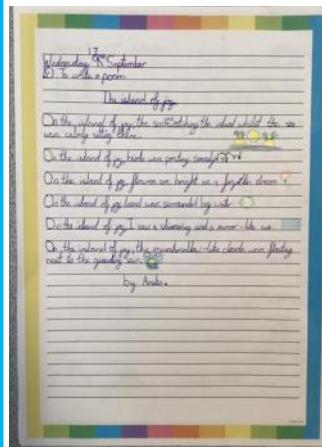 Wednesday 17th September
LO To write a poem
The island of joy
On the island of joy, the sun was the island whilst the sea
was calmly sitting there.
On the island of joy, birds were
On the island of joy, flowers were bright as a forgotten dream
On the island of joy, land was surrounded by water
On the island of joy, I saw a shimmering and a mirror-like sea.
On the island of joy, the -like clouds were floating
next to the guarding sun.
by